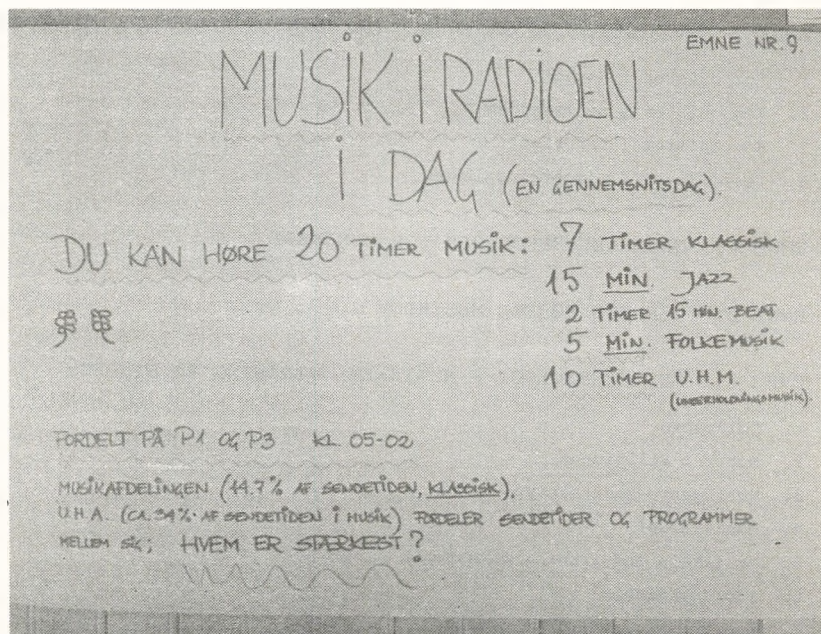 EMNE NR. 9.
MUSIK I RADIOEN
I DAG (EN GENNEMSNITSDAG).
DU KAN HØRE 20 TIMER MUSIK: 7 TIMER KLASSISK
15 MIN. JAZZ
2 TIMER 15 MIN. BEAT
5 MIN. FOLKEMUSIK
10 TIMER U.H.M.
(UNDERHOLDNINGSMUSIK).
FORDELT PÅ P1 OG P3 KL 05-02
MUSIKAFDELINGEN (14.7% AF SENDETIDEN, KLASSISK),
U.H.A. (CA. 34% AF SENDETIDEN I MUSIK) FORDELER SENDETIDER OG PROGRAMMER
MELLEM SIG; HVEM ER STÆRKEST?